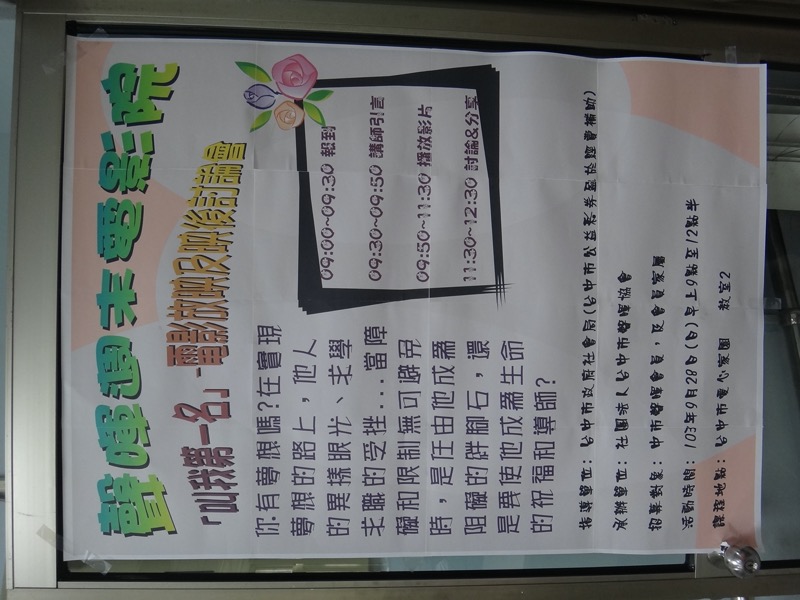 聲暉週末電影院
「叫我第一名」-電影放映及映後討論會
你有夢想嗎?在實現
夢想的路上，他人
的異樣眼光、求學
求職的受挫...當障
礙和限制無可避免
時，是任由他成為
阻礙的絆腳石，還
是要使他成為生命
的祝福和導師?
09:00~09:30 報到
09:30~09:50 講師引言
09:50~11:30 播放影片
11:30~12:30 討論&分享
指導單位：台中市政府社會局(台中市公益彩券盈餘基金補助)
承辦單位：社團法人台中市聲暉協會
招募對象：中市聲暉會員，友會員家屬
活動時間：103年9月28日(日)早上9點至12點半
課程地點：台中市愛心家園 教室2